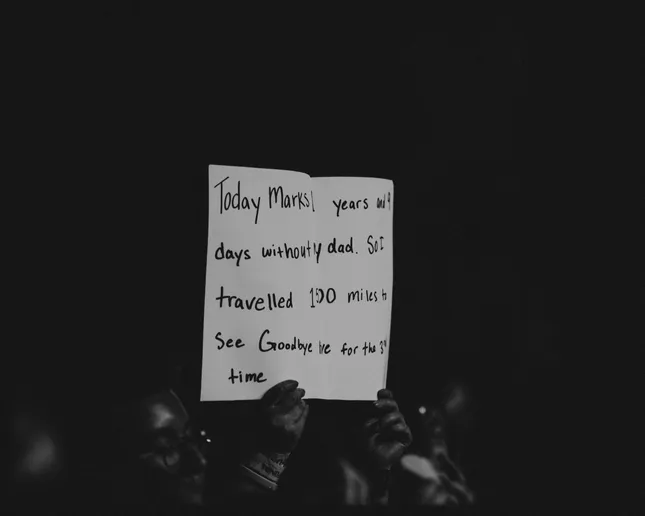 Today Marks years and 9
days without dad. So I
travelled miles to
See Goodbye for the 3rd
time